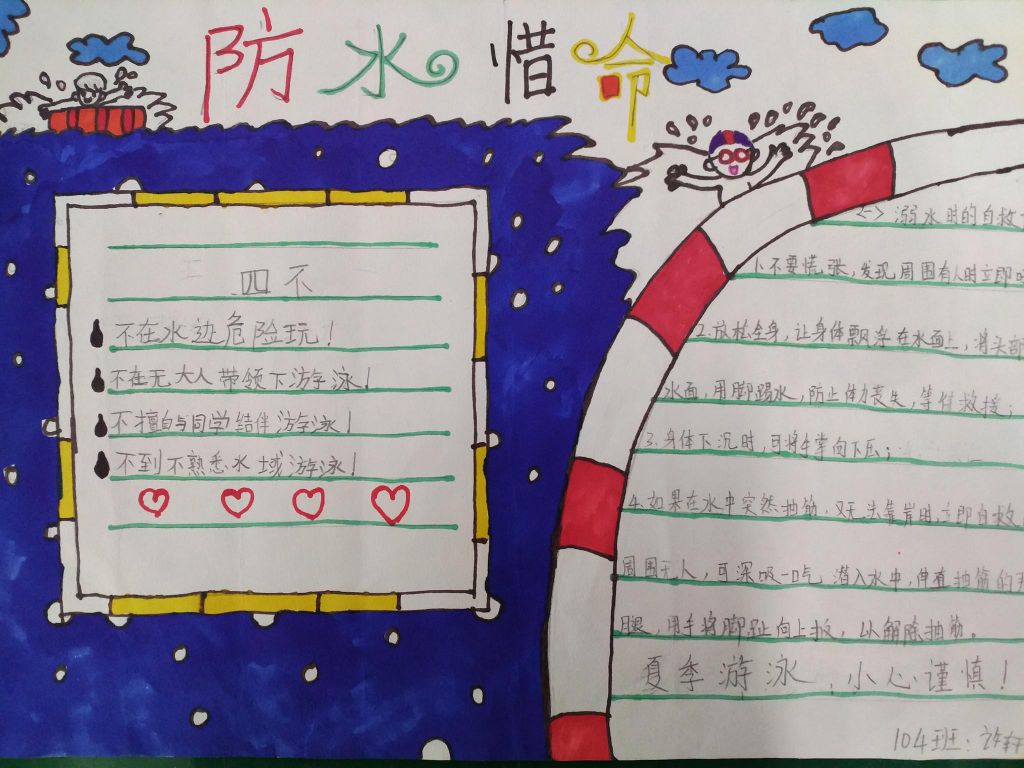 防水惜命
四不
不在水边危险玩！
不在无大人带领下游泳！
不擅自与同学结伴游泳！
不到不熟悉水域游泳！
<一>溺水时的自救
1.不要慌张，发现周围有人时立即
2.放松全身，让身体飘浮在水面上，将头部
水面，用脚踢水，防止体力丧失，等待救援；
3.身体下沉时，可将手掌向下压；
4.如果在水中突然抽筋，又无法靠岸时，立即自救
周围无人，可深吸一口气潜入水中，伸直抽筋的
腿，用手将脚趾向上扳，以解除抽筋。
夏季游泳，小心谨慎！
104班：许轩